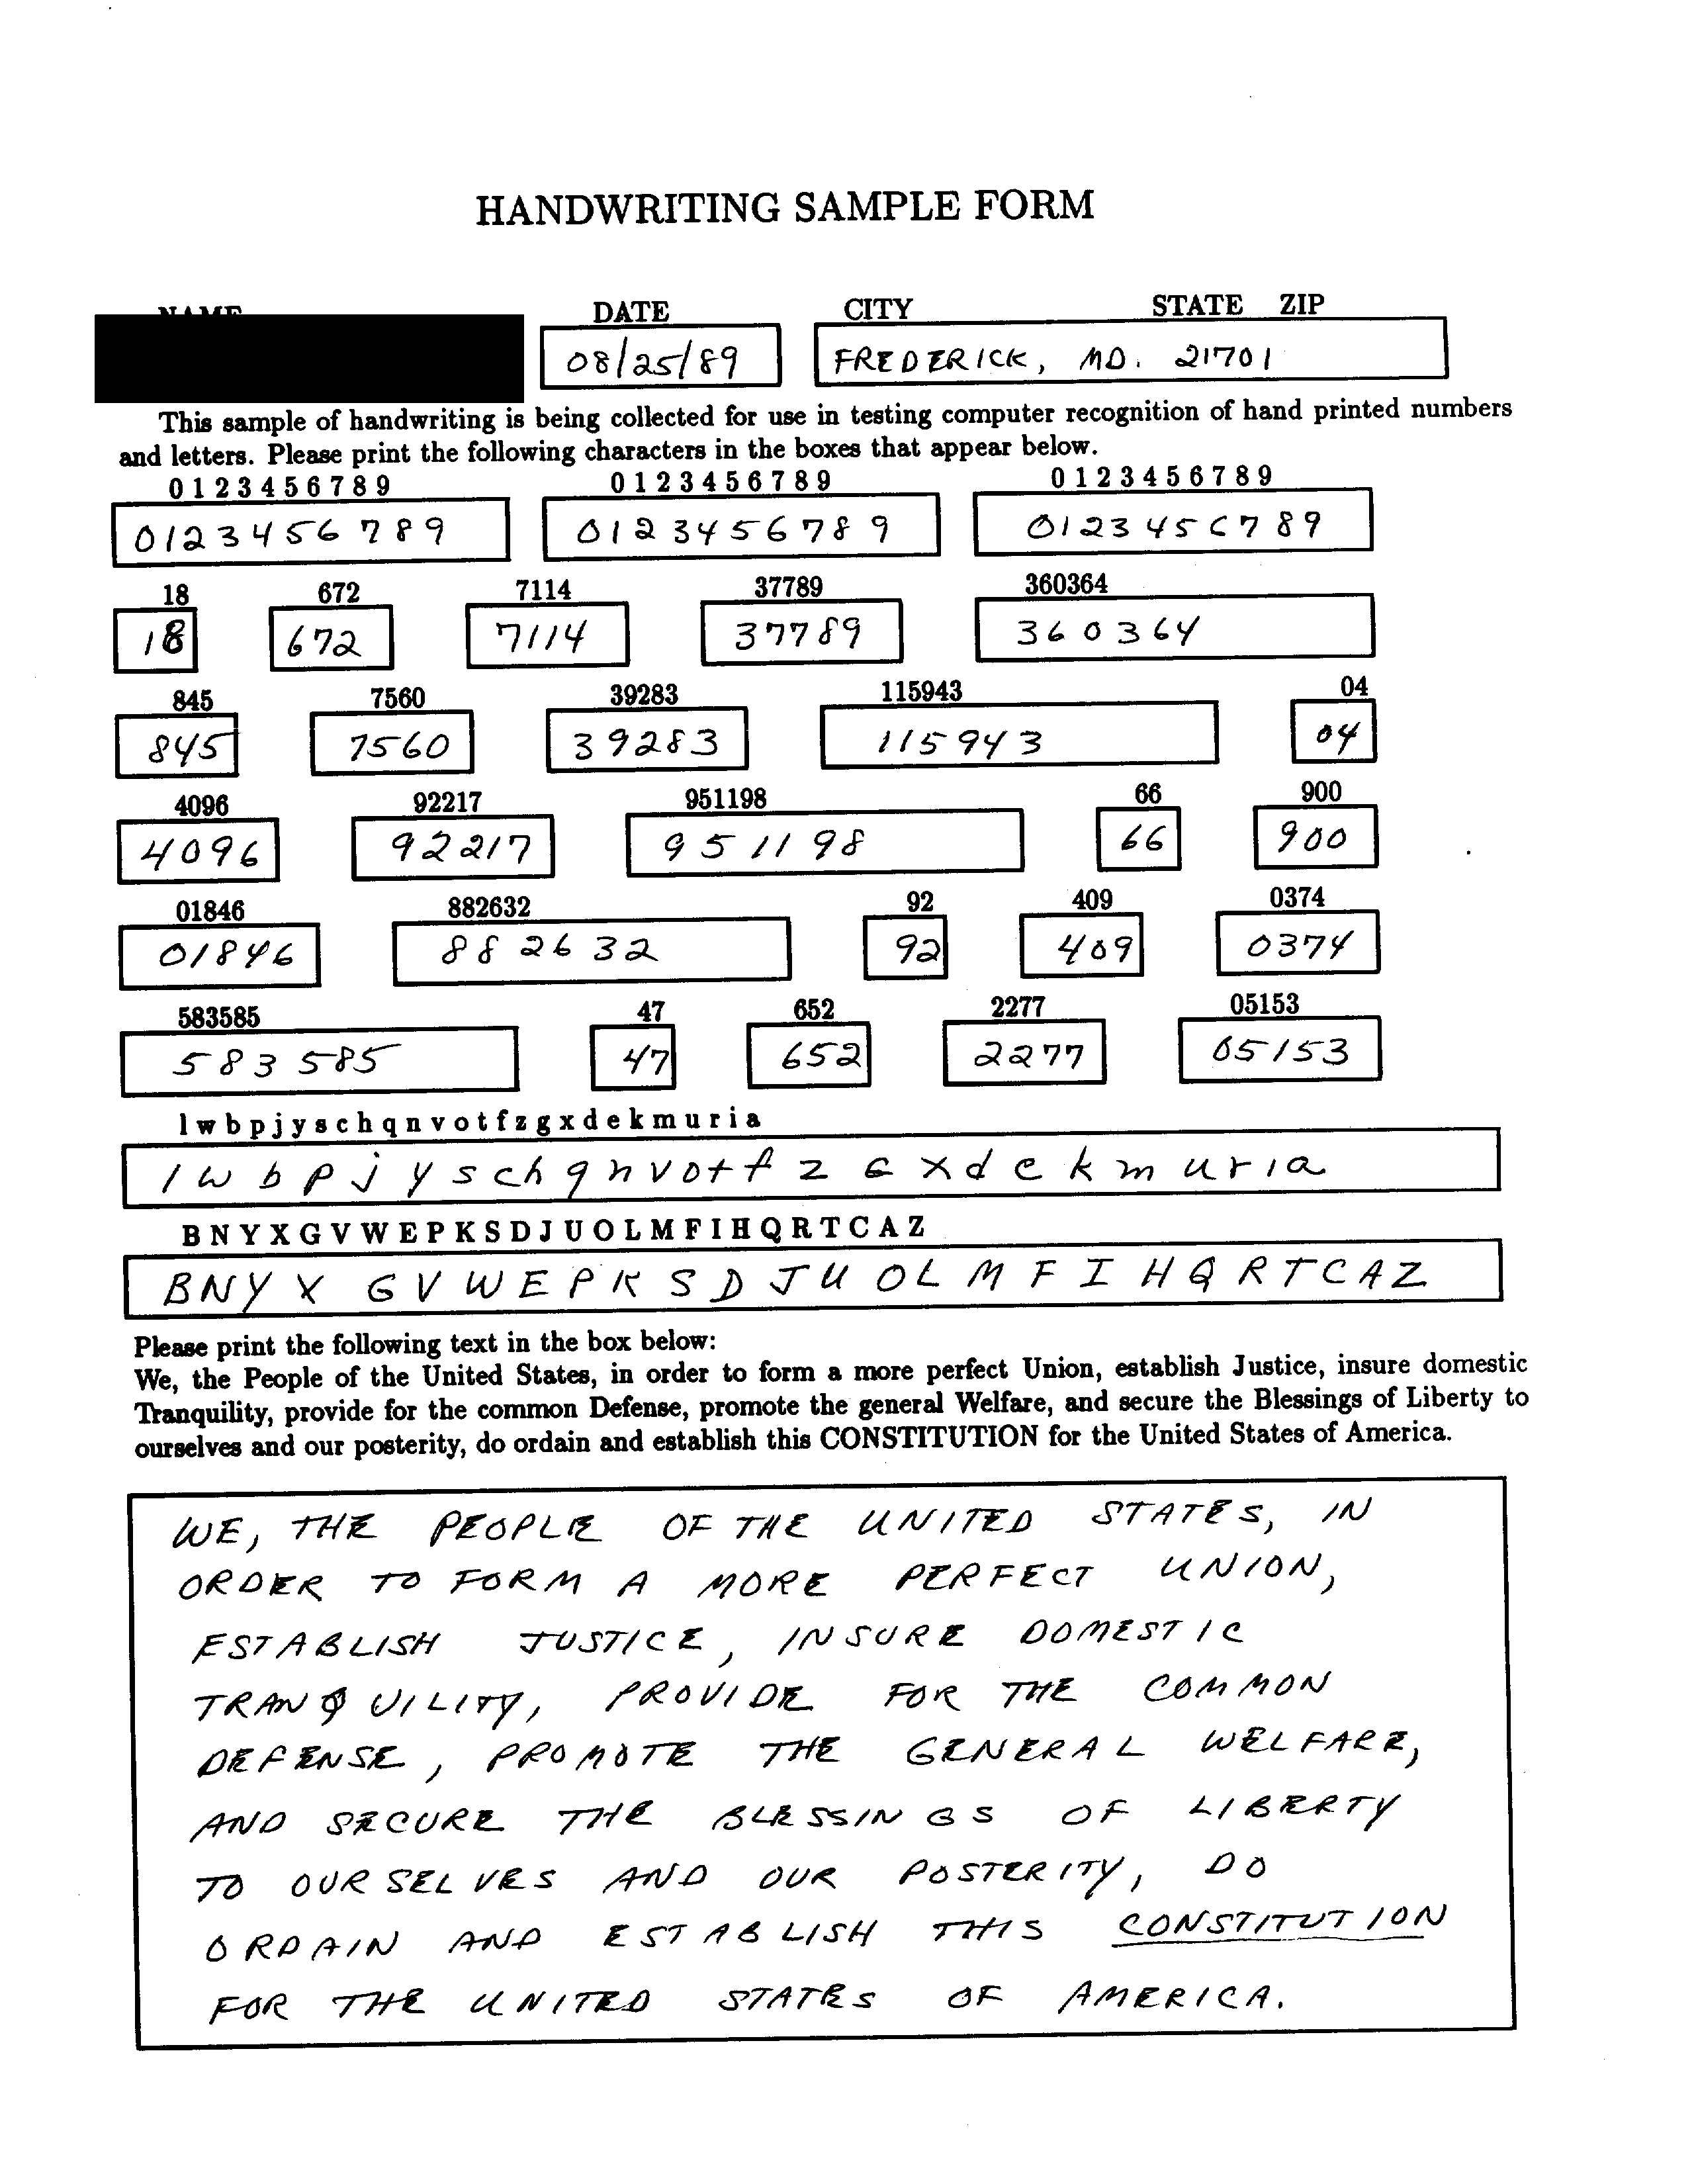 HANDWRITING SAMPLE FORM
DATE CITY STATE ZIP
08/25/89 FREDERICK, MD. 21701
This sample of handwriting is being collected for use in testing computer recognition of hand printed numbers
and letters. Please print the following characters in the boxes that appear below.
0 1 2 3 4 5 6 7 8 9 0 1 2 3 4 5 6 7 8 9 0 1 2 3 4 5 6 7 8 9
0123456789 0123456789 0123456789
18 672 7114 37789 360364
18 672 7114 37789 360364
845 7560 39283 115943 04
845 7560 39283 115943 04
4096 92217 951198 66 900
4096 92217 951198 66 900
01846 882632 92 409 0374
01846 882632 92 409 0374
583585 47 652 2277 05153
583585 47 652 2277 05153
l w b p j y s c h q n v o t f z g x d e k m u r i a
l w b p j y s c h q n v o t f z G x d e k m u r i a
B N Y X G V W E P K S D J U O L M F I H Q R T C A Z
B N Y X G V W E P K S D J U O L M F I H Q R T C A Z
Please print the following text in the box below:
We, the People of the United States, in order to form a more perfect Union, establish Justice, insure domestic
Tranquility, provide for the common Defense, promote the general Welfare, and secure the Blessings of Liberty to
ourselves and our posterity, do ordain and establish this CONSTITUTION for the United States of America.
WE, THE PEOPLE OF THE UNITED STATES, IN
ORDER TO FORM A MORE PERFECT UNION,
ESTABLISH JUSTICE, INSURE DOMESTIC
TRANQUILITY, PROVIDE FOR THE COMMON
DEFENSE, PROMOTE THE GENERAL WELFARE,
AND SECURE THE BLESSINGS OF LIBERTY
TO OURSELVES AND OUR POSTERITY, DO
ORDAIN AND ESTABLISH THIS CONSTITUTION
FOR THE UNITED STATES OF AMERICA.